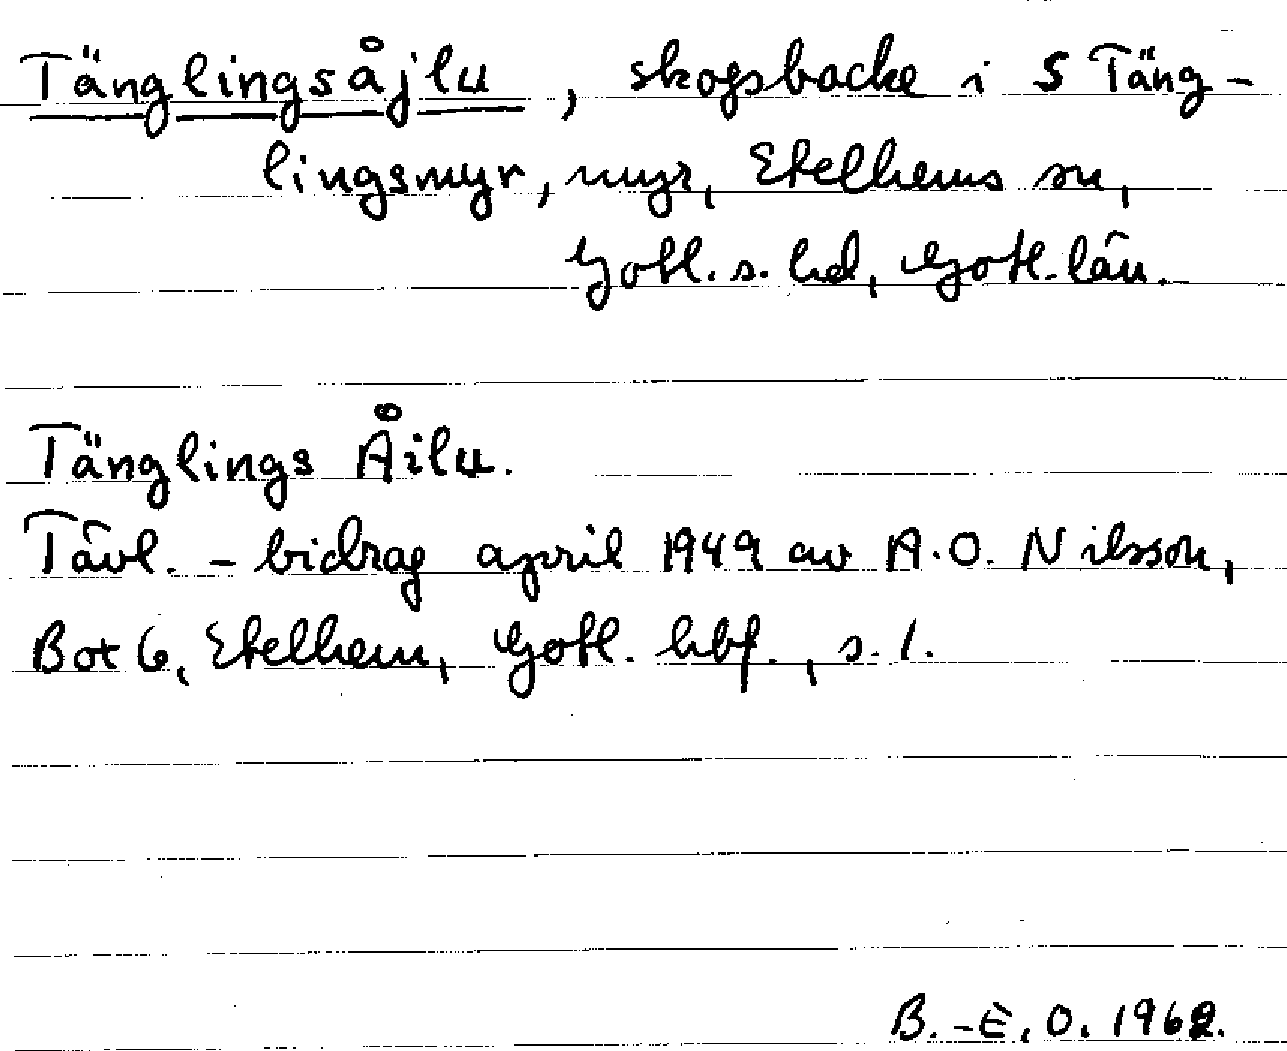 Tänglingsåjlu, skogsbacke i S Täng-
lingsmyr, myr, Etelhems sn,
Gotl. s. hd, Gotl. län.
Tänglings Åilu.
Tävl.-bidrag april 1949 av A.O. Nilsson,
Bot 6, Etelhem, Gotl. hbf., s. 1.
B.-E. O. 1962.